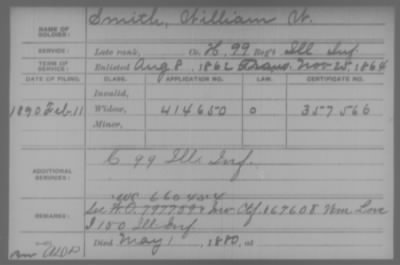 NAME OF SOLDIER: Smith, William W.
SERVICE: Late rank, Co. H, 99 Reg't Ill Inf.
TERM OF SERVICE: Enlisted Aug 8, 1862 Trans. Nov 25, 1864
DATE OF FILING. CLASS. APPLICATION NO. LAW. CERTIFICATE NO.
Invalid,
1890 Feb 11 Widow, 414650 0 357566
Minor,
ADDITIONAL SERVICES: C 99 Ill Inf.
WC 660404
REMARKS: See W.O. 797759 Inv Ctf. 167608 Wm Love
I 150 Ill Inf
Died May 1, 1880, at